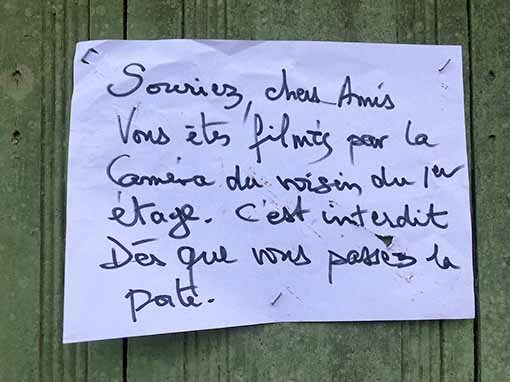 Souriez, chers Amis
Vous êtes filmés par la
Caméra du voisin du 1er
étage. C'est interdit
Dès que vous passez la
porte.